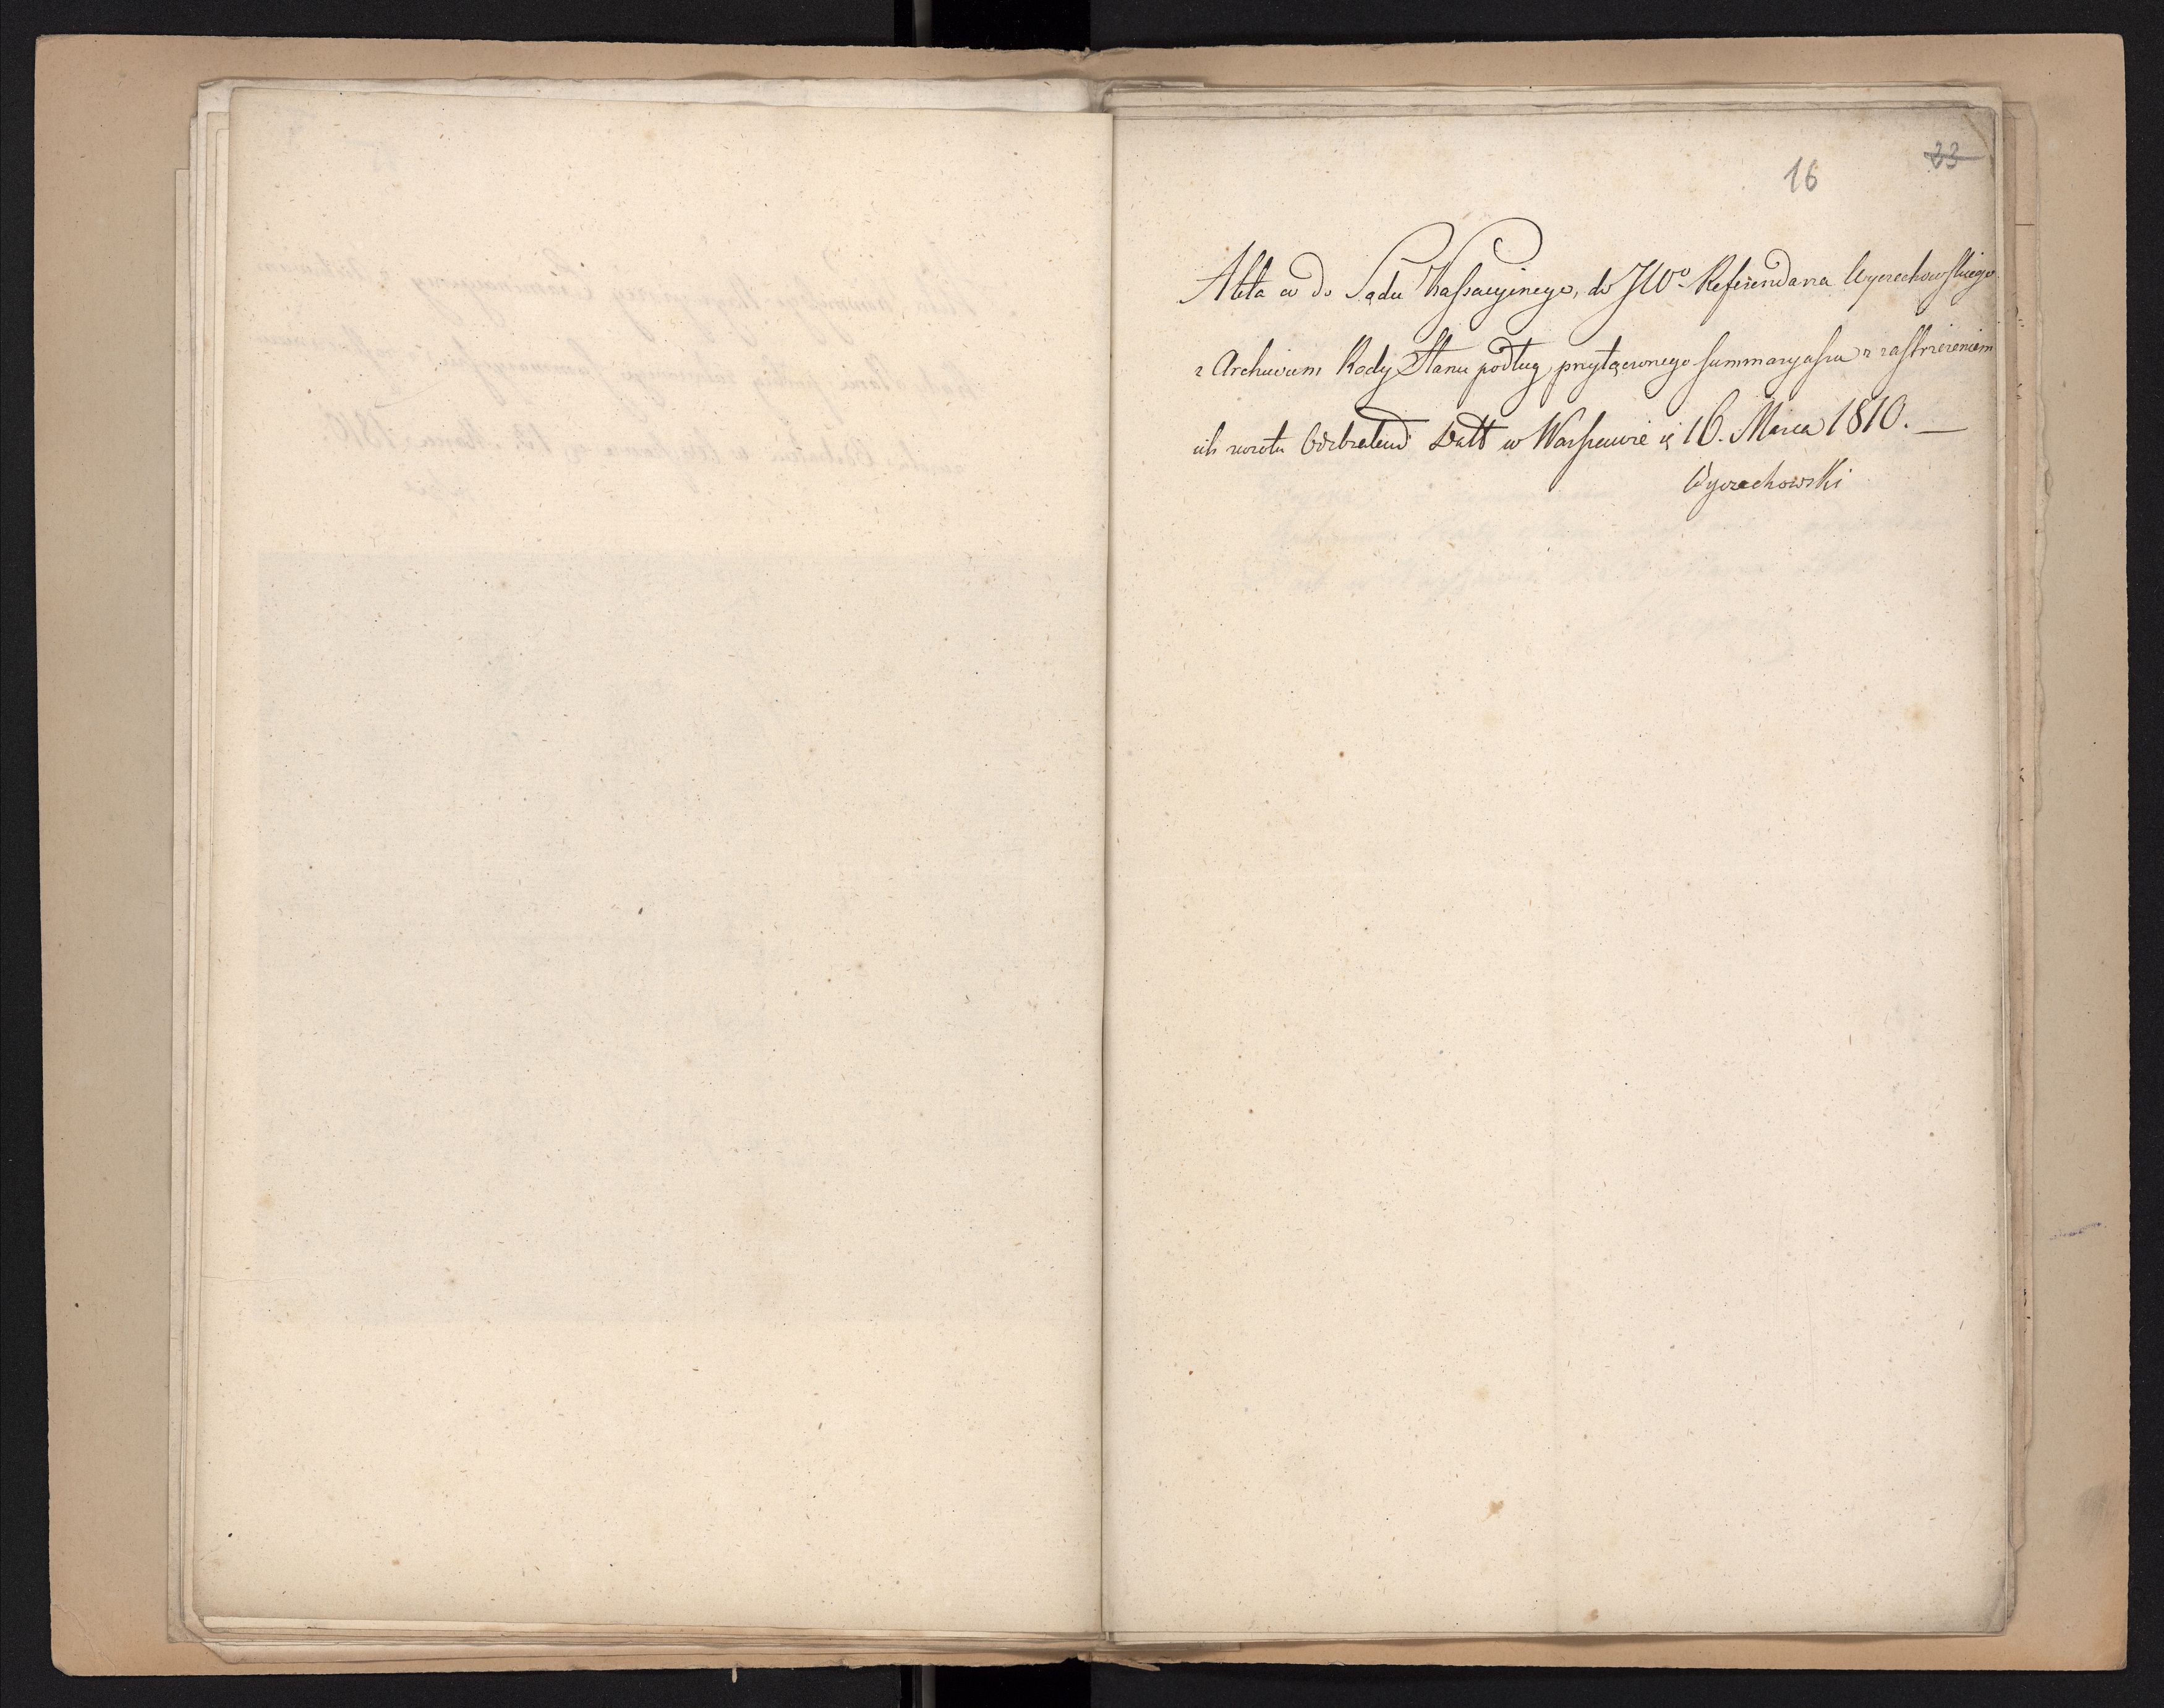 16
23
Akta co do Sądu Kassacyinego, do JWo Referendarza Wyczechowskiego
z Archivum Rady Stanu podług przyłączonego summaryusza z zastrzeżeniem
ich zwrotu Odebrałem Datt w Warszawie d. 16. Marca 1810. —
Wyczechowski